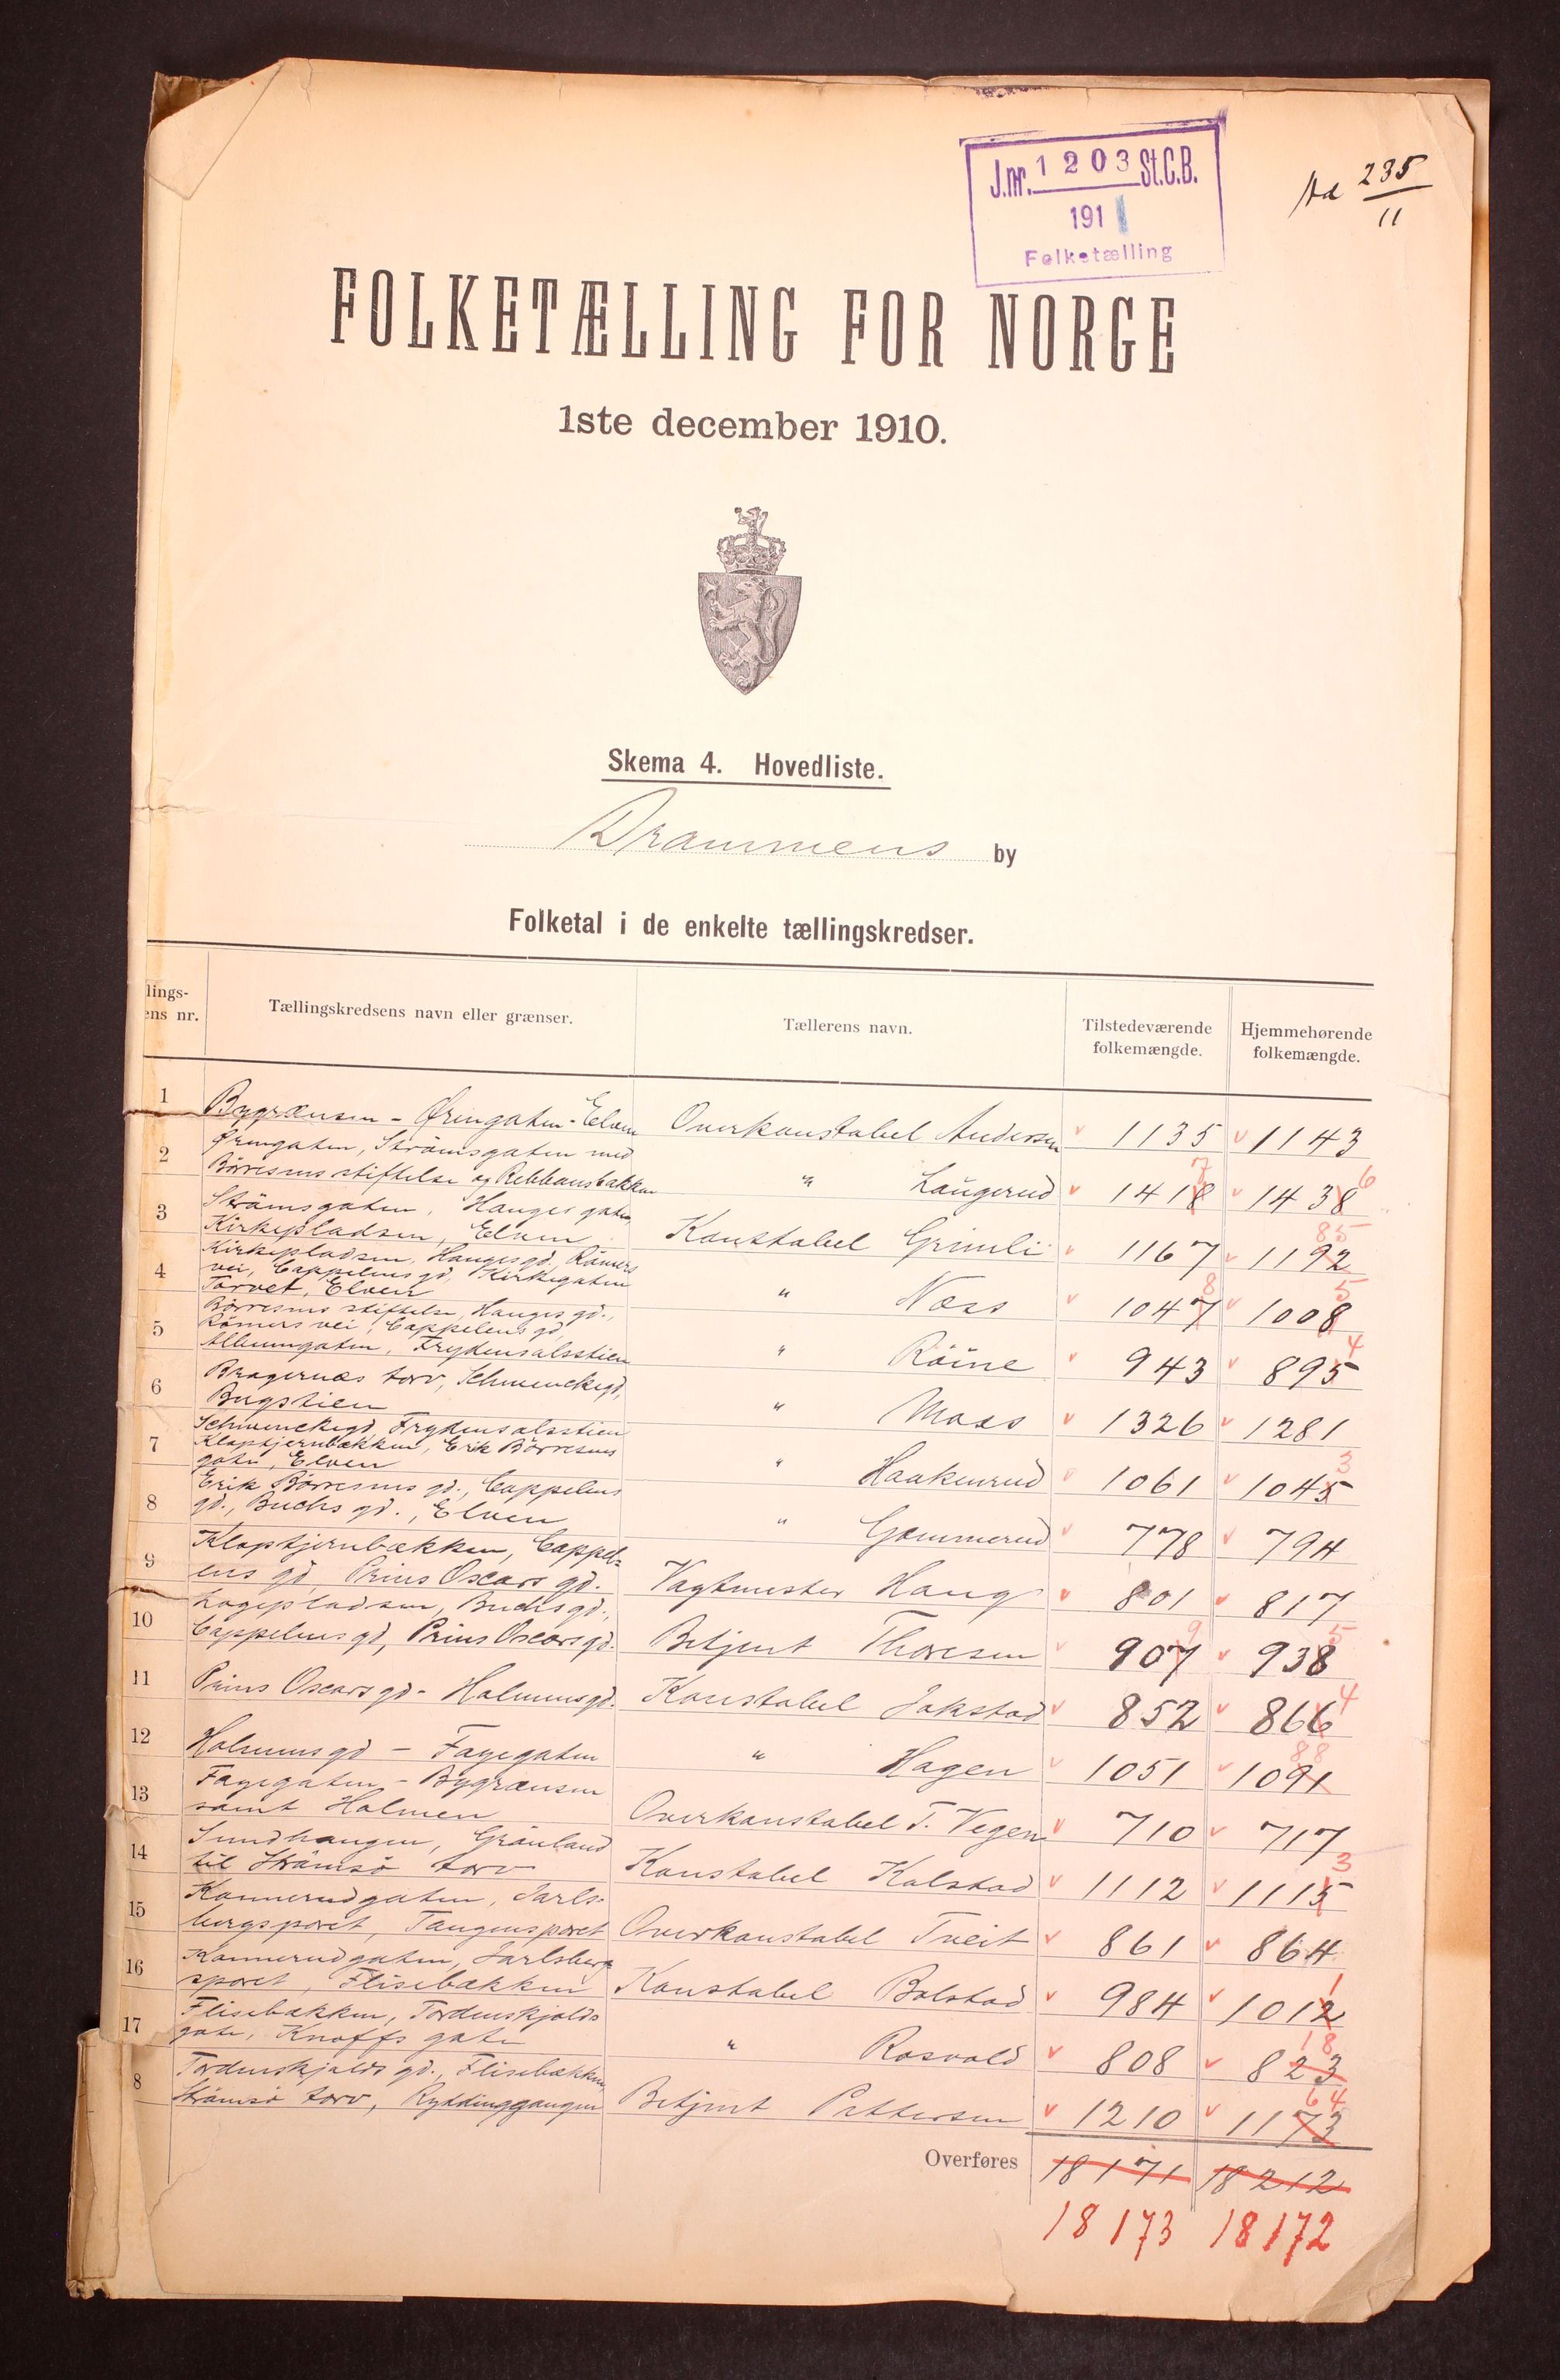 J.nr. 1203 St.C.B.
191
Folketælling
235
11
FOLKETÆLLING FOR NORGE
1ste december 1910.
Skema 4. Hovedliste.
Drammens by
Folketal i de enkelte tællingskredser.
lings-
ens nr.
Tællingskredsens navn eller grænser.
Tællerens navn.
Tilstedeværende
folkemængde.
Hjemmehørende
folkemængde.
1 Bygrænsen - Øringaten - Elven Overkonstabel Andersen 1135 1143
Øringaten, Strömsgaten med
2 Börresens stiftelse og Rebbansbakken " Laŭgerud 1418 7 1438 6
Strömsgaten, Hauges gaten
3 Kirkepladsen, Elven Konstabel Grimli 1167 1192 85
Kirkepladsen, Hauges gd, Römers
vei, Cappelens gd, Kirkegaten
4 Torvet, Elven " Næss 1047 8 1008 5
Börresens stiftelse, Hauges gd.,
Römers vei, Cappelens gd,
5 Albumgaten, Frydensalsstien " Röine 943 895 4
Bragernæs torv, Schwenckegd,
6 Bygstien " Moss 1326 1281
Schwenckegd, Frydensalsstien
Kloptjernbækken, Erik Börresens
7 gate, Elven " Haakenrud 1061 1045 3
Erik Börresens gd., Cappelens
8 gd., Buchs gd., Elven " Gommerud 778 794
Kloptjernbækken, Cappel-
9 ens gd, Prins Oscars gd. Vagtmester Haug 801 817
Logepladsen, Buchs gd.,
10 Cappelens gd, Prins Oscars gd. Betjent Thoresen 907 9 938 5
11 Prins Oscars gd - Holmens gd. Konstabel Jokstad 852 866 4
12 Holmens gd - Fayegaten " Hagen 1051 1091 88
Fayegaten - Bygrænsen
13 samt Holmen Overkonstabel T. Vegem 710 717
Sundhaugen, Grönland
14 til Strömsö torv Konstabel Kolstad 1112 1115 3
Konnerudgaten, Jarls-
15 bergsporet, Tangensporet Overkonstabel Tveit 861 864
Konnerudgaten, Jarlsberg
16 sporet, Flisebækken Konstabel Bolstad 984 1012 1
Flisebækken, Tordenskjolds
17 gate, Knoffs gate " Rosvold 808 823 18
Tordenskjolds gd., Flisebækken,
8 Strömsö torv, Ryddinggangen Betjent Pettersen 1210 1173 64
Overføres 18171 18212
18173 18172